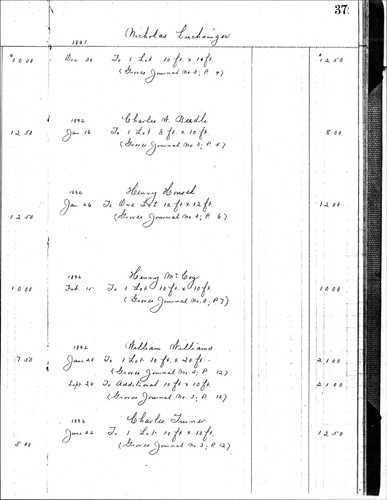 37
Nicholas Luchsinger
1891
$10 00 Dec 20 To 1 Lot 10 ft. x 10 ft. $12 50
(Groves Journal No. 2; P. 4)
1892 Charles W. Beedle
12 50 Jan 16 To 1 Lot 8 ft. x 10 ft. 8 00
(Groves Journal No. 2; P. 5)
1892 Henry Housel
Jan. 26 To One Lot 12 ft x 12 ft. 12 00
12 50 (Groves Journal No. 2; P. 6)
1892 Henry McCoy
10 00 Feb. 15 To 1 Lot 10 ft. x 10 ft. 10 00
(Groves Journal No. 2; P 7)
1892 William Williams
7 50 June 28 To 1 Lot 10 ft. x 20 ft. 21 00
(Groves Journal No. 2; P. 12)
Sept 28 To Additional 10 ft x 10 ft. 21 00
(Groves Journal No. 2; P. 12)
1892 Charles Turner
June 22 To 1 Lot 10 ft x 10 ft. 12 50
5 00 (Groves Journal No. 2; P. 12)